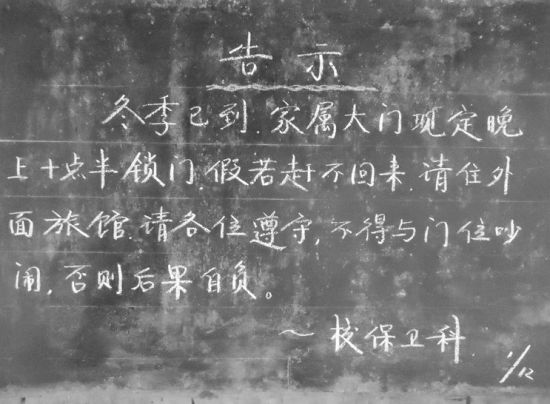 告示
冬季已到.家属大门现定晚
上十点半锁门.假若赶不回来.请住外
面旅馆.请各位遵守,不得与门位吵
闹,否则后果自负。
~校保卫科.
1/12